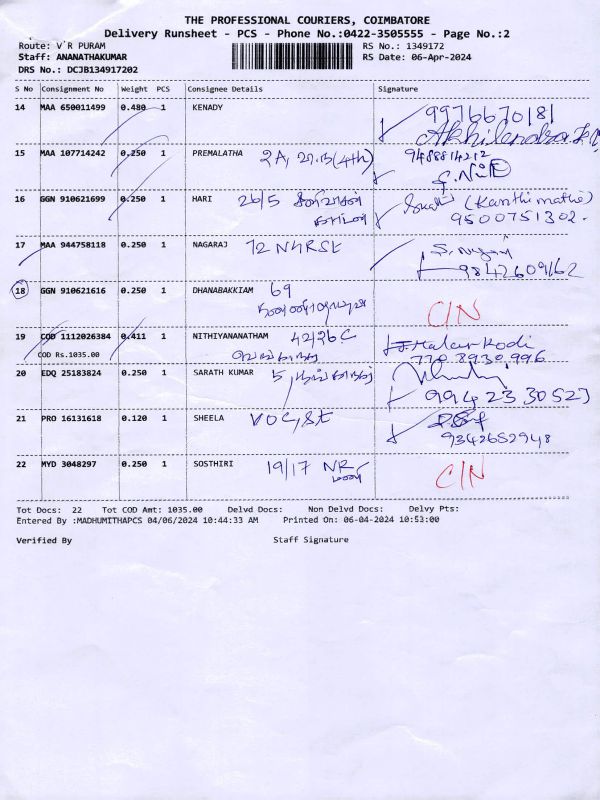 THE PROFESSIONAL COURIERS, COIMBATORE
Delivery Runsheet - PCS - Phone No.:0422-3505555 - Page No.:2
Route: V R PURAM
RS No.: 1349172
Staff: ANANATHAKUMAR
RS Date: 06-Apr-2024
DRS No.: DCJB134917202
S No Consignment No Weight PCS Consignee Details Signature
14 MAA 650011499 0.480 1 KENADY 9976670181
15 MAA 107714242 0.250 1 PREMALATHA 9488814212
16 GGN 910621699 0.250 1 HARI 26/5 (Kanthimathi)
9500751302.
17 MAA 944758118 0.250 1 NAGARAJ 72 NHRSt
9842609162
18 GGN 910621616 0.250 1 DHANABAKKIAM 69
C/N
19 COD 1112026384 0.411 1 NITHIYANANATHAM 42/26 C Malar Kodi
COD Rs.1035.00 770 8930 996
20 EDQ 25183824 0.250 1 SARATH KUMAR 5,
994 233 0523
21 PRO 16131618 0.120 1 SHEELA VOC, St
9342652948
22 MYD 3048297 0.250 1 SOSTHIRI 19/17 NR
C/N
Tot Docs: 22 Tot COD Amt: 1035.00 Delvd Docs: Non Delvd Docs: Delvy Pts:
Entered By :MADHUMITHAPCS 04/06/2024 10:44:33 AM Printed On: 06-04-2024 10:53:00
Verified By Staff Signature